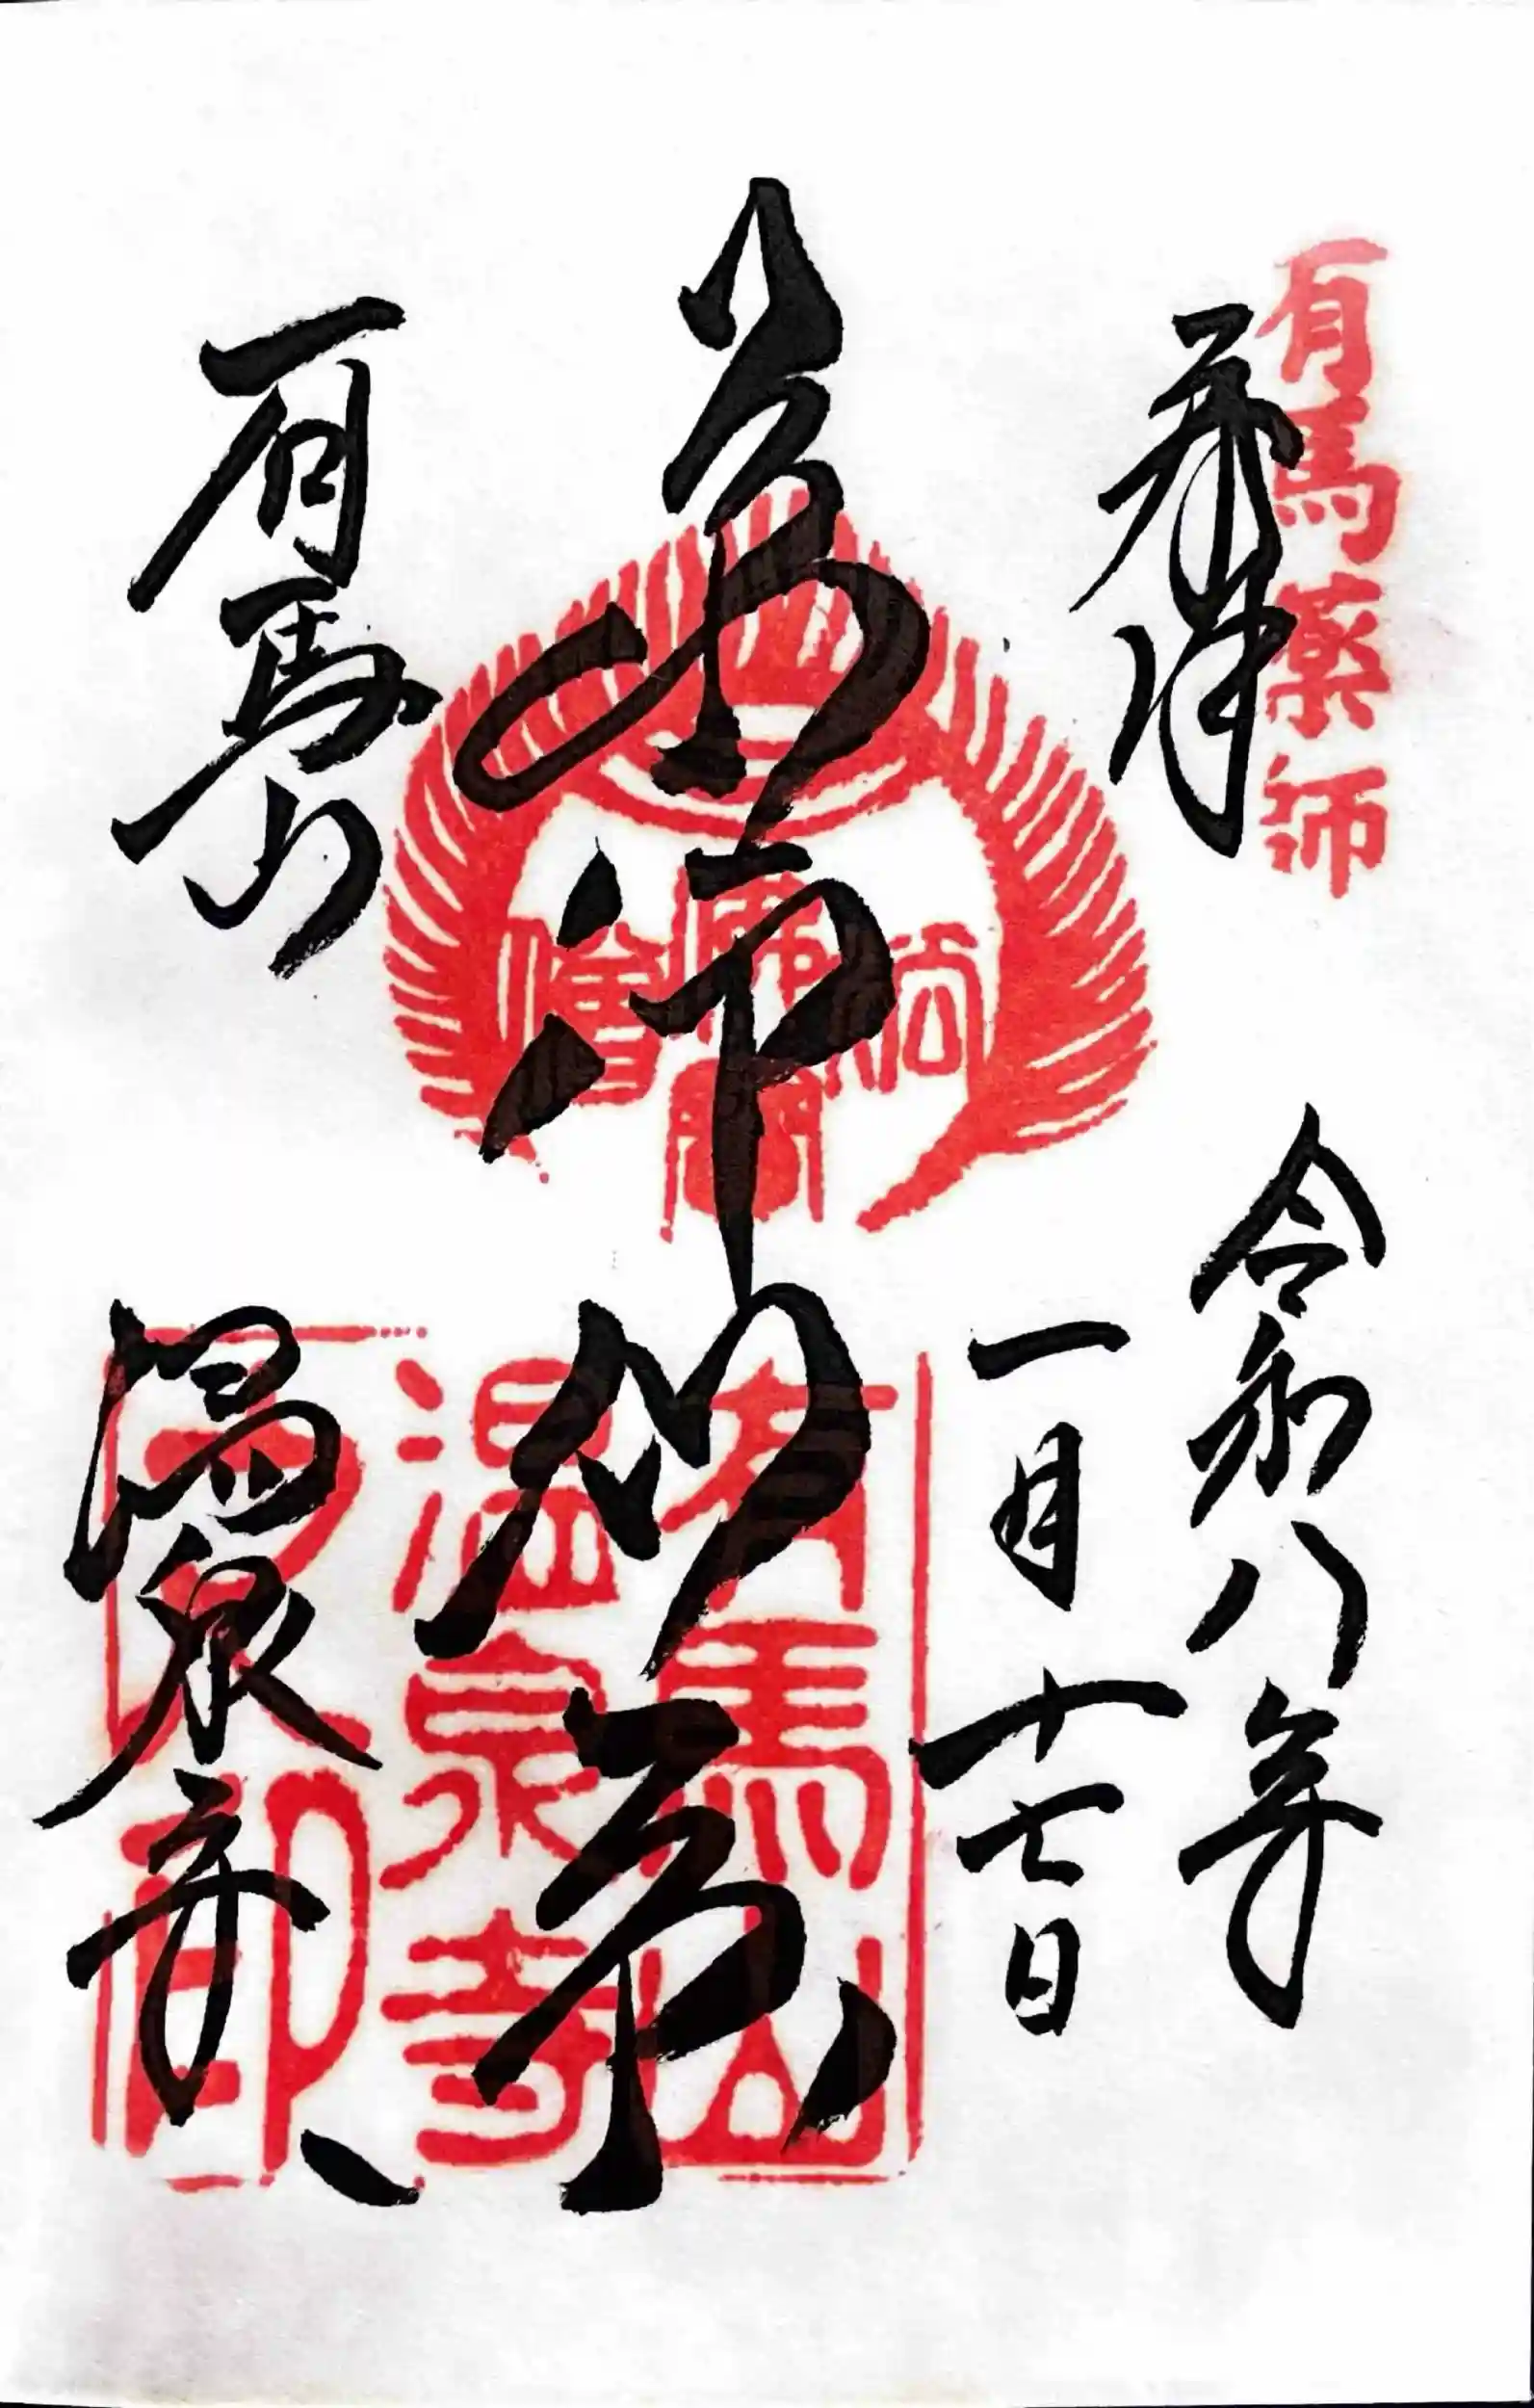 有馬薬師
奉拝
令和八年
一月十七日
薬師如来
佛法僧寶
有馬山
温泉寺
之印
有馬山
温泉寺